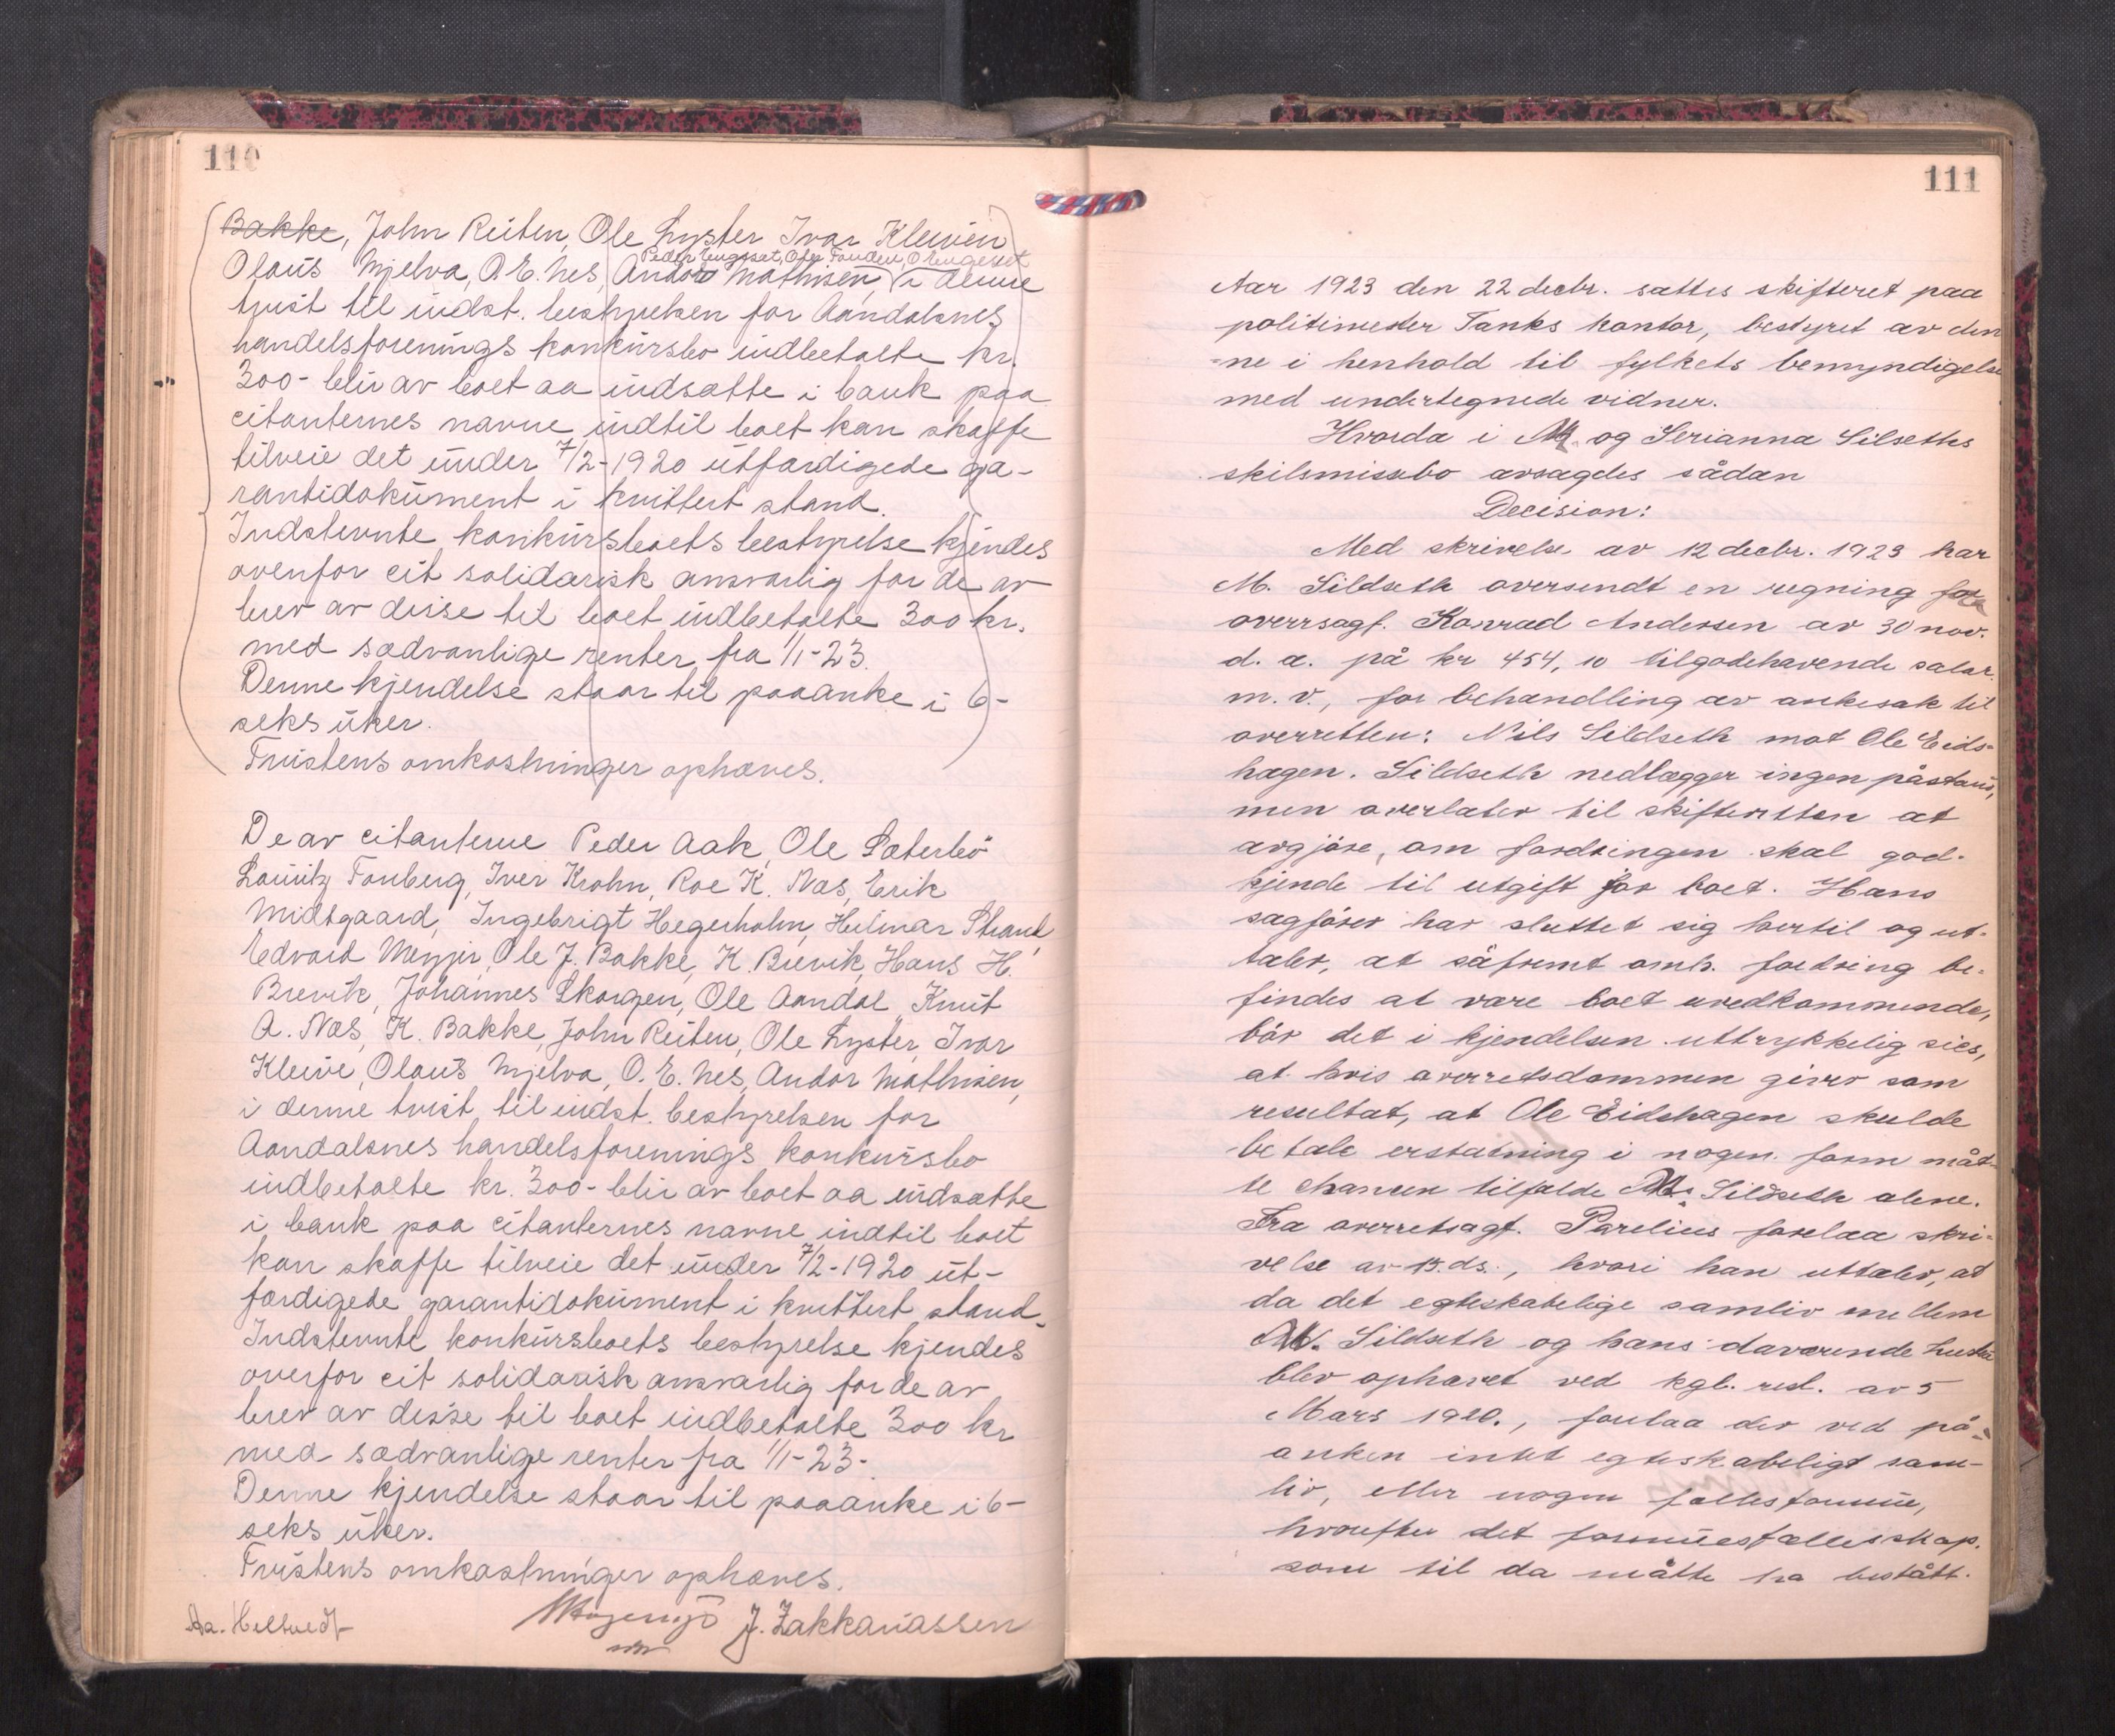 110
Bakke, John Reiten, Ole Lyster Ivar Kleiven
Peder Engeset, Ole Fonden, O Engeset
Olaus Mjelva, O. E. Nes, Andor Mathisen, i denne
tvist til indst. bestyrelsen for Aandalsnes
handelsforenings konkursbo indbetalte kr.
300- blir av boet aa indsætte i bank paa
citanternes navne indtil boet kan skaffe
tilveie det under 7/2-1920 utfærdigede ga-
rantidokument i kvittert stand.
Indstevnte konkursboets bestyrelse kjendes
ovenfor cit solidarisk ansvarlig for de av
hver av disse til boet indbetalte 300 kr.
med sædvanlige renter fra 1/1-23.
Denne kjendelse staar til paaanke i 6-
seks uker.
Tvistens omkostninger ophæves.
De av citanterne Peder Aak, Ole Sæterbö
Lauritz Fonberg, Iver Krohn, Roe K. Næs, Erik
Midtgaard, Ingebrigt Hegerholm, Hilmar Strand,
Edvard Meyer, Ole J. Bakke, K. Brevik, Hans H.
Brevik, Johannes Skorgen, Ole Aandal, Knut
A. Næs, K. Bakke, John Reiten, Ole Lyster, Ivar
Kleive, Olaus Mjelva, O. E. Nes, Andor Mathisen,
i denne tvist til indst. bestyrelsen for
Aandalsnes handelsforenings konkursbo
indbetalte kr. 300- blir av boet aa indsætte
i bank paa citanternes navne indtil boet
kan skaffe tilveie det under 7/2-1920 ut-
færdigede garantidokument i kvittert stand.
Indstevnte konkursboets bestyrelse kjendes
overfor cit solidarisk ansvarlig for de av
hver av disse til boet indbetalte 300 kr
med sædvanlige renter fra 1/1-23-.
Denne kjendelse staar til paaanke i 6-
seks uker.
Tvistens omkostninger ophæves.
Aa. Helsvedt J. Zakkariassen
111
Aar 1923 den 22 decbr. sattes skifteret paa
politimester Tanks kontor, bestyret av den
=ne i henhold til fylkets bemyndigelse
med undertegnede vidner.
Hvorda i M. og Serianna Silseths
skilsmissebo avsagdes sådan
Decision:
Med skrivelse av 12 decbr. 1923 har
M. Sildseth oversendt en regning fra
overrsagf. Konrad Andersen av 30 nov.
d. a. på kr 454,10 tilgodehavende salær
m. v., for behandling av ankesak til
overretten: Nils Sildseth mot Ole Eids-
hagen. Sildseth nedlægger ingen påstand,
men overlater til skifteretten at
avgjöre, om fordringen skal god-
kjende til utgift for boet. Hans
sagförer har sluttet sig hertil og ut-
taler, at såfremt omh. fordring be-
findes at være boet uvedkommende,
bör det i kjendelsen uttrykkelig sies,
at hvis overretsdommen giver som
resultat, at Ole Eidshagen skulde
betale erstatning i nogen form måt-
te chancen tilfalde M. Sildseth alene.
Fra overretsagf. Parelius forelaa skri-
velse av 15. ds., hvori han uttaler, at
da det egteskabelige samliv mellem
M. Sildseth og hans daværende hustru
blev ophævet ved kgl. res. av 5
Mars 1920., forelaa der ved på-
anken intet egteskabeligt sam-
liv, eller nogen fællesformue,
hvorefter det formuesfællesskap.
som til da måtte ha bestått.